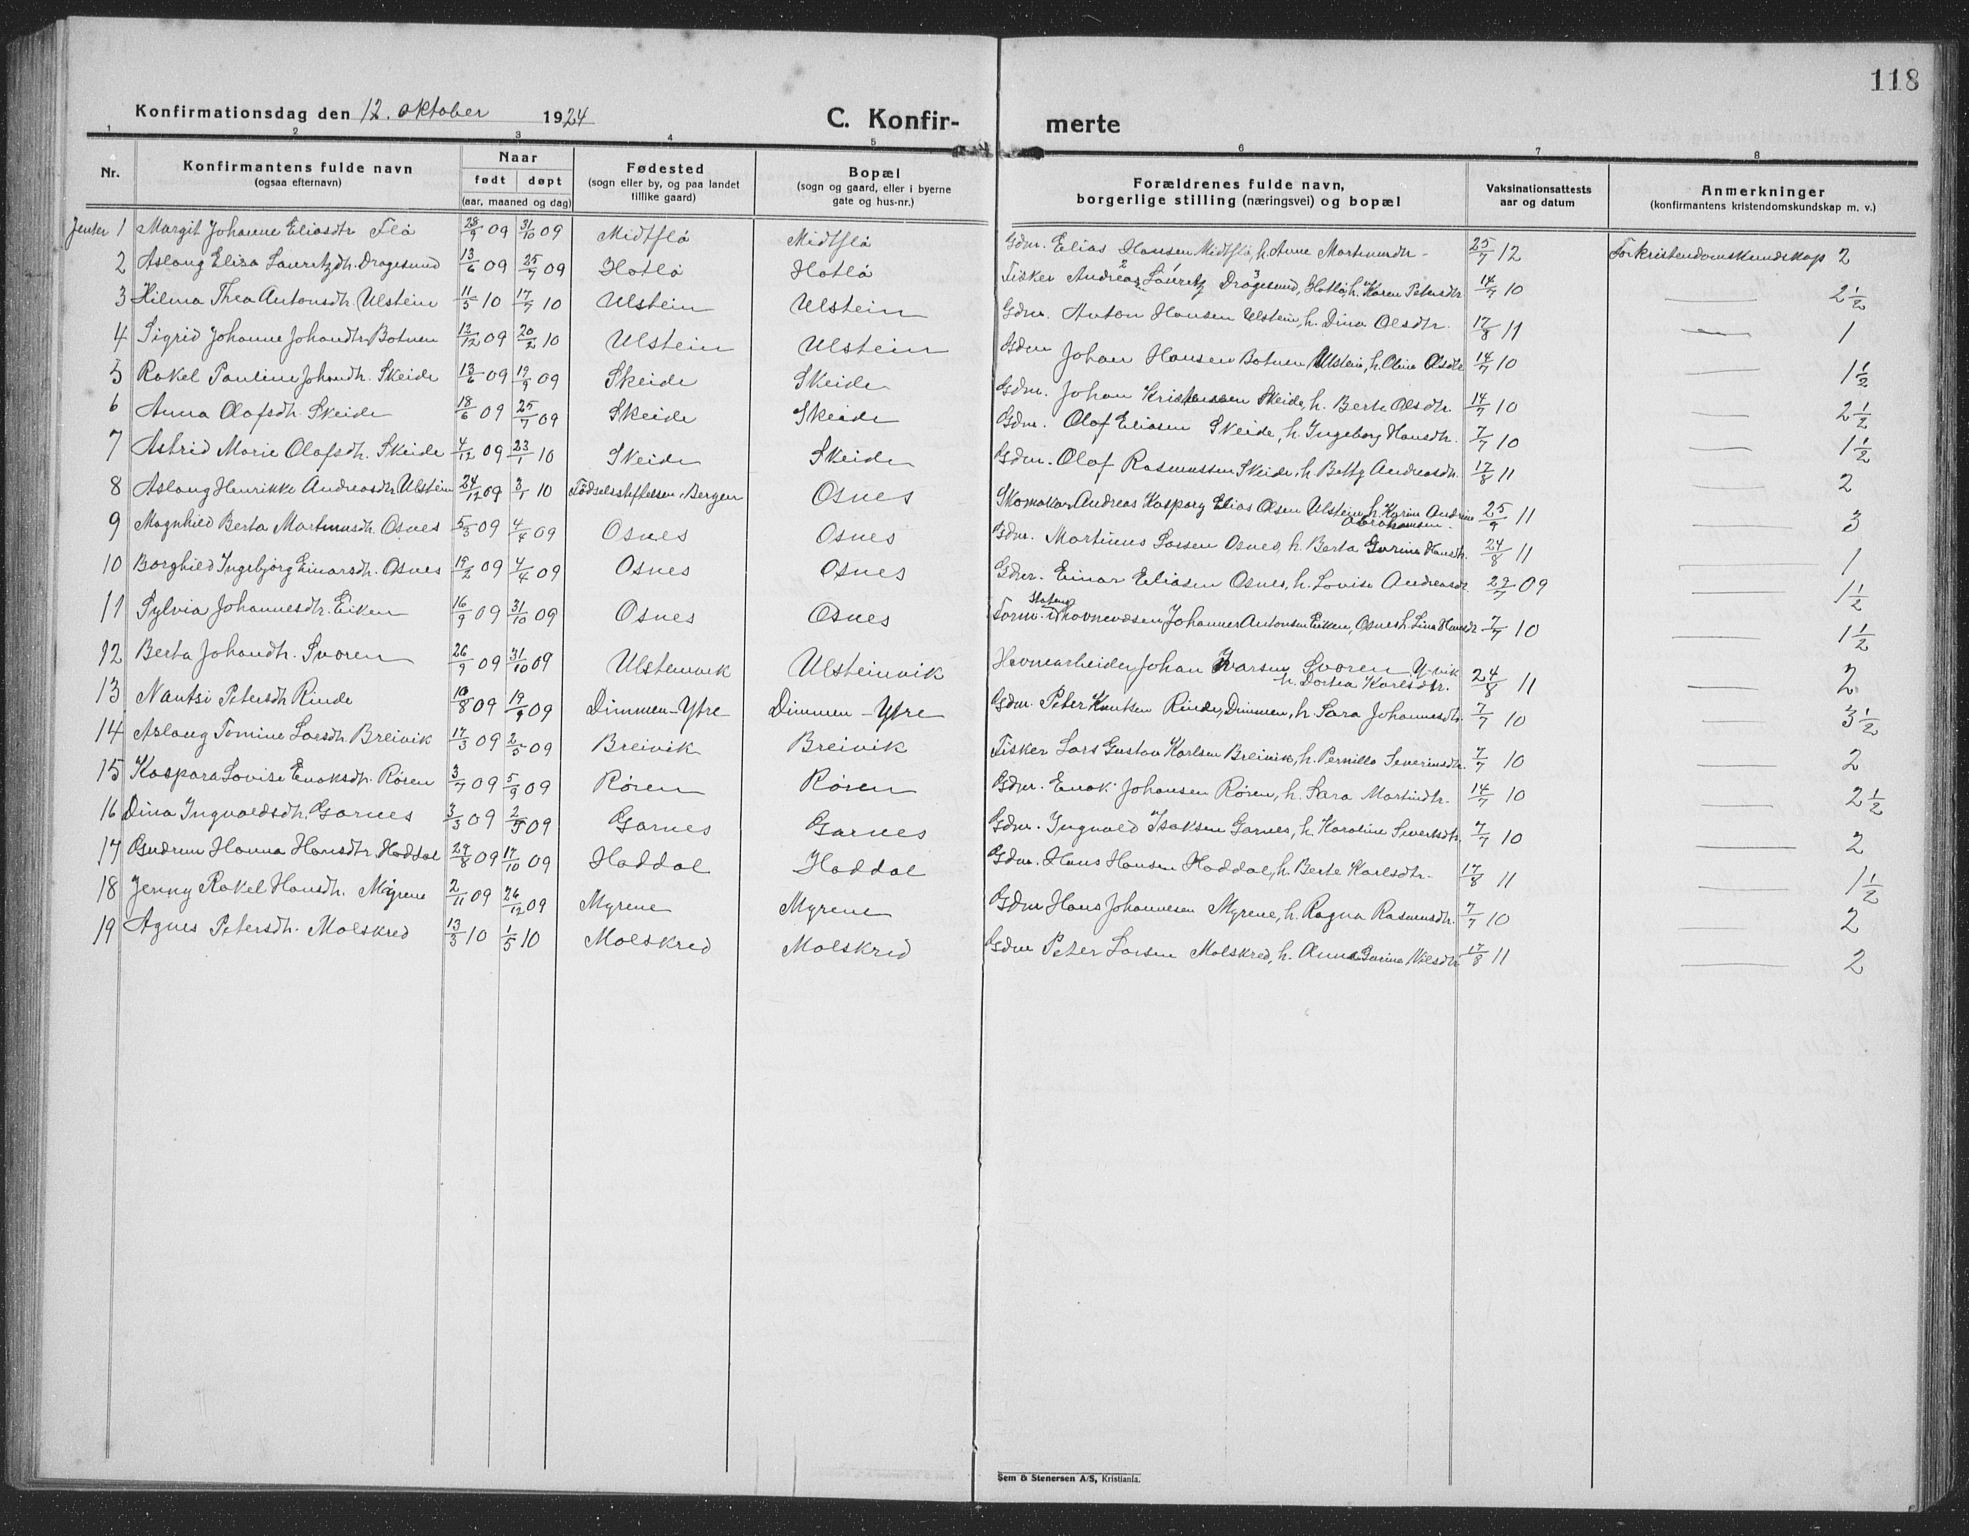 118
Konfirmationsdag den 12. oktober 1924
C. Konfir- merte
1 2 3 4 5 6 7 8
Nr. Konfirmantens fulde navn (ogsaa efternavn) Naar født døpt (aar, maaned og dag) Fødested (sogn eller by, og paa landet tillike gaard) Bopæl (sogn og gaard, eller i byerne gate og hus-nr.) Forældrenes fulde navn, borgerlige stilling (næringsvei) og bopæl Vaksinationsattests aar og datum Anmerkninger (konfirmantens kristendomskundskap m. v.)
Jenter 1 Margit Johanne Eliasdtr Flø 28/9 09 31/10 09 Midtflø Midtflø Gdm. Elias Hansen Midtflø, h. Anne Martinusdtr. 25/7 12 For kristendomskundskap 2
2 Aslaug Eliza Lauritzdtr. Dragesund 13/6 09 25/7 09 Hatlø Hatlø Fisker Andreas 2 Lauritz 1 Dragesund 3, Hatlø, h. Karen Petersdtr 14/7 10 — 2 1/2
3 Hilma Thea Antonsdtr. Ulstein 11/5 10 17/7 10 Ulstein Ulstein Gdm. Anton Hansen Ulstein, h. Dina Olsdtr. 17/8 11 — 1
4 Sigrid Johanne Johandtr. Botnen 12/12 09 20/2 10 Ulstein Ulstein Gdm Johan Hansen Botnen, Ulstein, h. Oline Olsdtr 14/7 10 — 1 1/2
5 Rakel Pauline Johandtr. Skeide 13/6 09 19/9 09 Skeide Skeide Gdm. Johan Kristensen Skeide, h. Berte Olsdtr. 14/7 10 — 2 1/2
6 Anna Olafsdtr. Skeide 18/6 09 25/7 09 Skeide Skeide Gdm. Olaf Eliasen Skeide, h. Ingeborg Hansdtr. 7/7 10 — 1 1/2
7 Astrid Marie Olafsdtr. Skeide 4/12 09 23/1 10 Skeide Skeide Gdm. Olaf Rasmussen Skeide, h. Betty Andreasdtr. 17/8 11 — 2
8 Aslaug Henrikke Andreasdtr Ulstein 24/12 09 3/1 10 Fødselsstiftelsen, Bergen Osnes Skomaker Andreas Kasparg Elias Olsen Ulstein, h. Karen Andrine Abrahamsen. 25/9 11 — 3
9 Magnhild Berta Martinusdtr. Osnes 5/3 09 4/4 09 Osnes Osnes Gdm. Martinus Larsen Osnes, h. Berta Gurine Hansdtr. 24/8 11 — 1
10 Borghild Ingebjørg Einarsdtr. Osnes 19/2 09 4/4 09 Osnes Osnes Gdm. Einar Eliasen Osnes, h. Lovise Andreasdtr 22/7 09 — 1 1/2
11 Sylvia Johannesdtr. Eiken 16/9 09 31/10 09 Osnes Osnes Form. i Statens Havnevæsen Johannes Antonsen Eiken, Osnes, h. Lina Hansdtr 7/7 10 — 1 1/2
12 Berta Johandtr. Svoren 26/9 09 31/10 09 Ulsteinvik Ulsteinvik Havnearbeider Johan Ivarsen Svoren U-vik h. Dortea Karlsdtr. 24/8 11 — 2
13 Nantsi Petersdtr. Rinde 10/8 09 19/9 09 Dimmen-Ytre Dimmen-Ytre Gdm. Peter Knutsen Rinde, Dimmen, h. Sara Johannesdtr. 7/7 10 — 3 1/2
14 Aslaug Tomine Larsdtr. Breivik 17/3 09 2/5 09 Breivik Breivik Fisker Lars Gustav Karlsen Breivik, h. Pernille Severinsdtr. 7/7 10 — 2
15 Kaspara Lovise Enoksdtr. Røren 3/7 09 5/9 09 Røren Røren Gdm. Enok Johansen Røren, h. Sara Martindtr. 14/7 10 — 2 1/2
16 Dina Ingvaldsdtr. Garnes 3/3 09 2/5 09 Garnes Garnes Gdm. Ingvald Isaksen Garnes, h. Karoline Sivertsdtr. 7/7 10 — 2
17 Gudrun Hanna Hansdtr. Haddal 29/8 09 17/10 09 Haddal Haddal Gdm. Hans Hansen Haddal, h. Berte Karlsdtr. 17/8 11 — 1 1/2
18 Jenny Rakel Hansdtr. Myrene 2/11 09 26/12 09 Myrene Myrene Gdm Hans Johannesen Myrene, h. Ragna Rasmusdtr. 7/7 10 — 2
19 Agnes Petersdtr. Malskred 13/3 10 1/5 10 Malskred Malskred Gdm Peter Larsen Malskred, h. Anne Gurine Nilsdtr 17/8 11 — 2
Sem & Stenersen A/S, Kristiania.